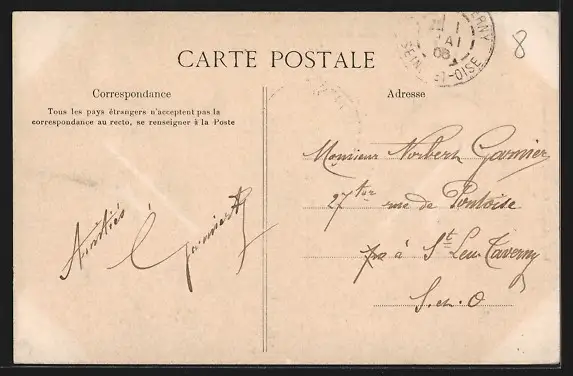 CARTE POSTALE
Correspondance
Tous les pays étrangers n'acceptent pas la
correspondance au recto, se renseigner à la Poste
Amitiés
Adresse
Monsieur Norbert Garnier
27 ter rue de Pontoise
à St Leu-Taverny
S-et-O
ERNY
MAI
08
SEINE-ET-OISE
8